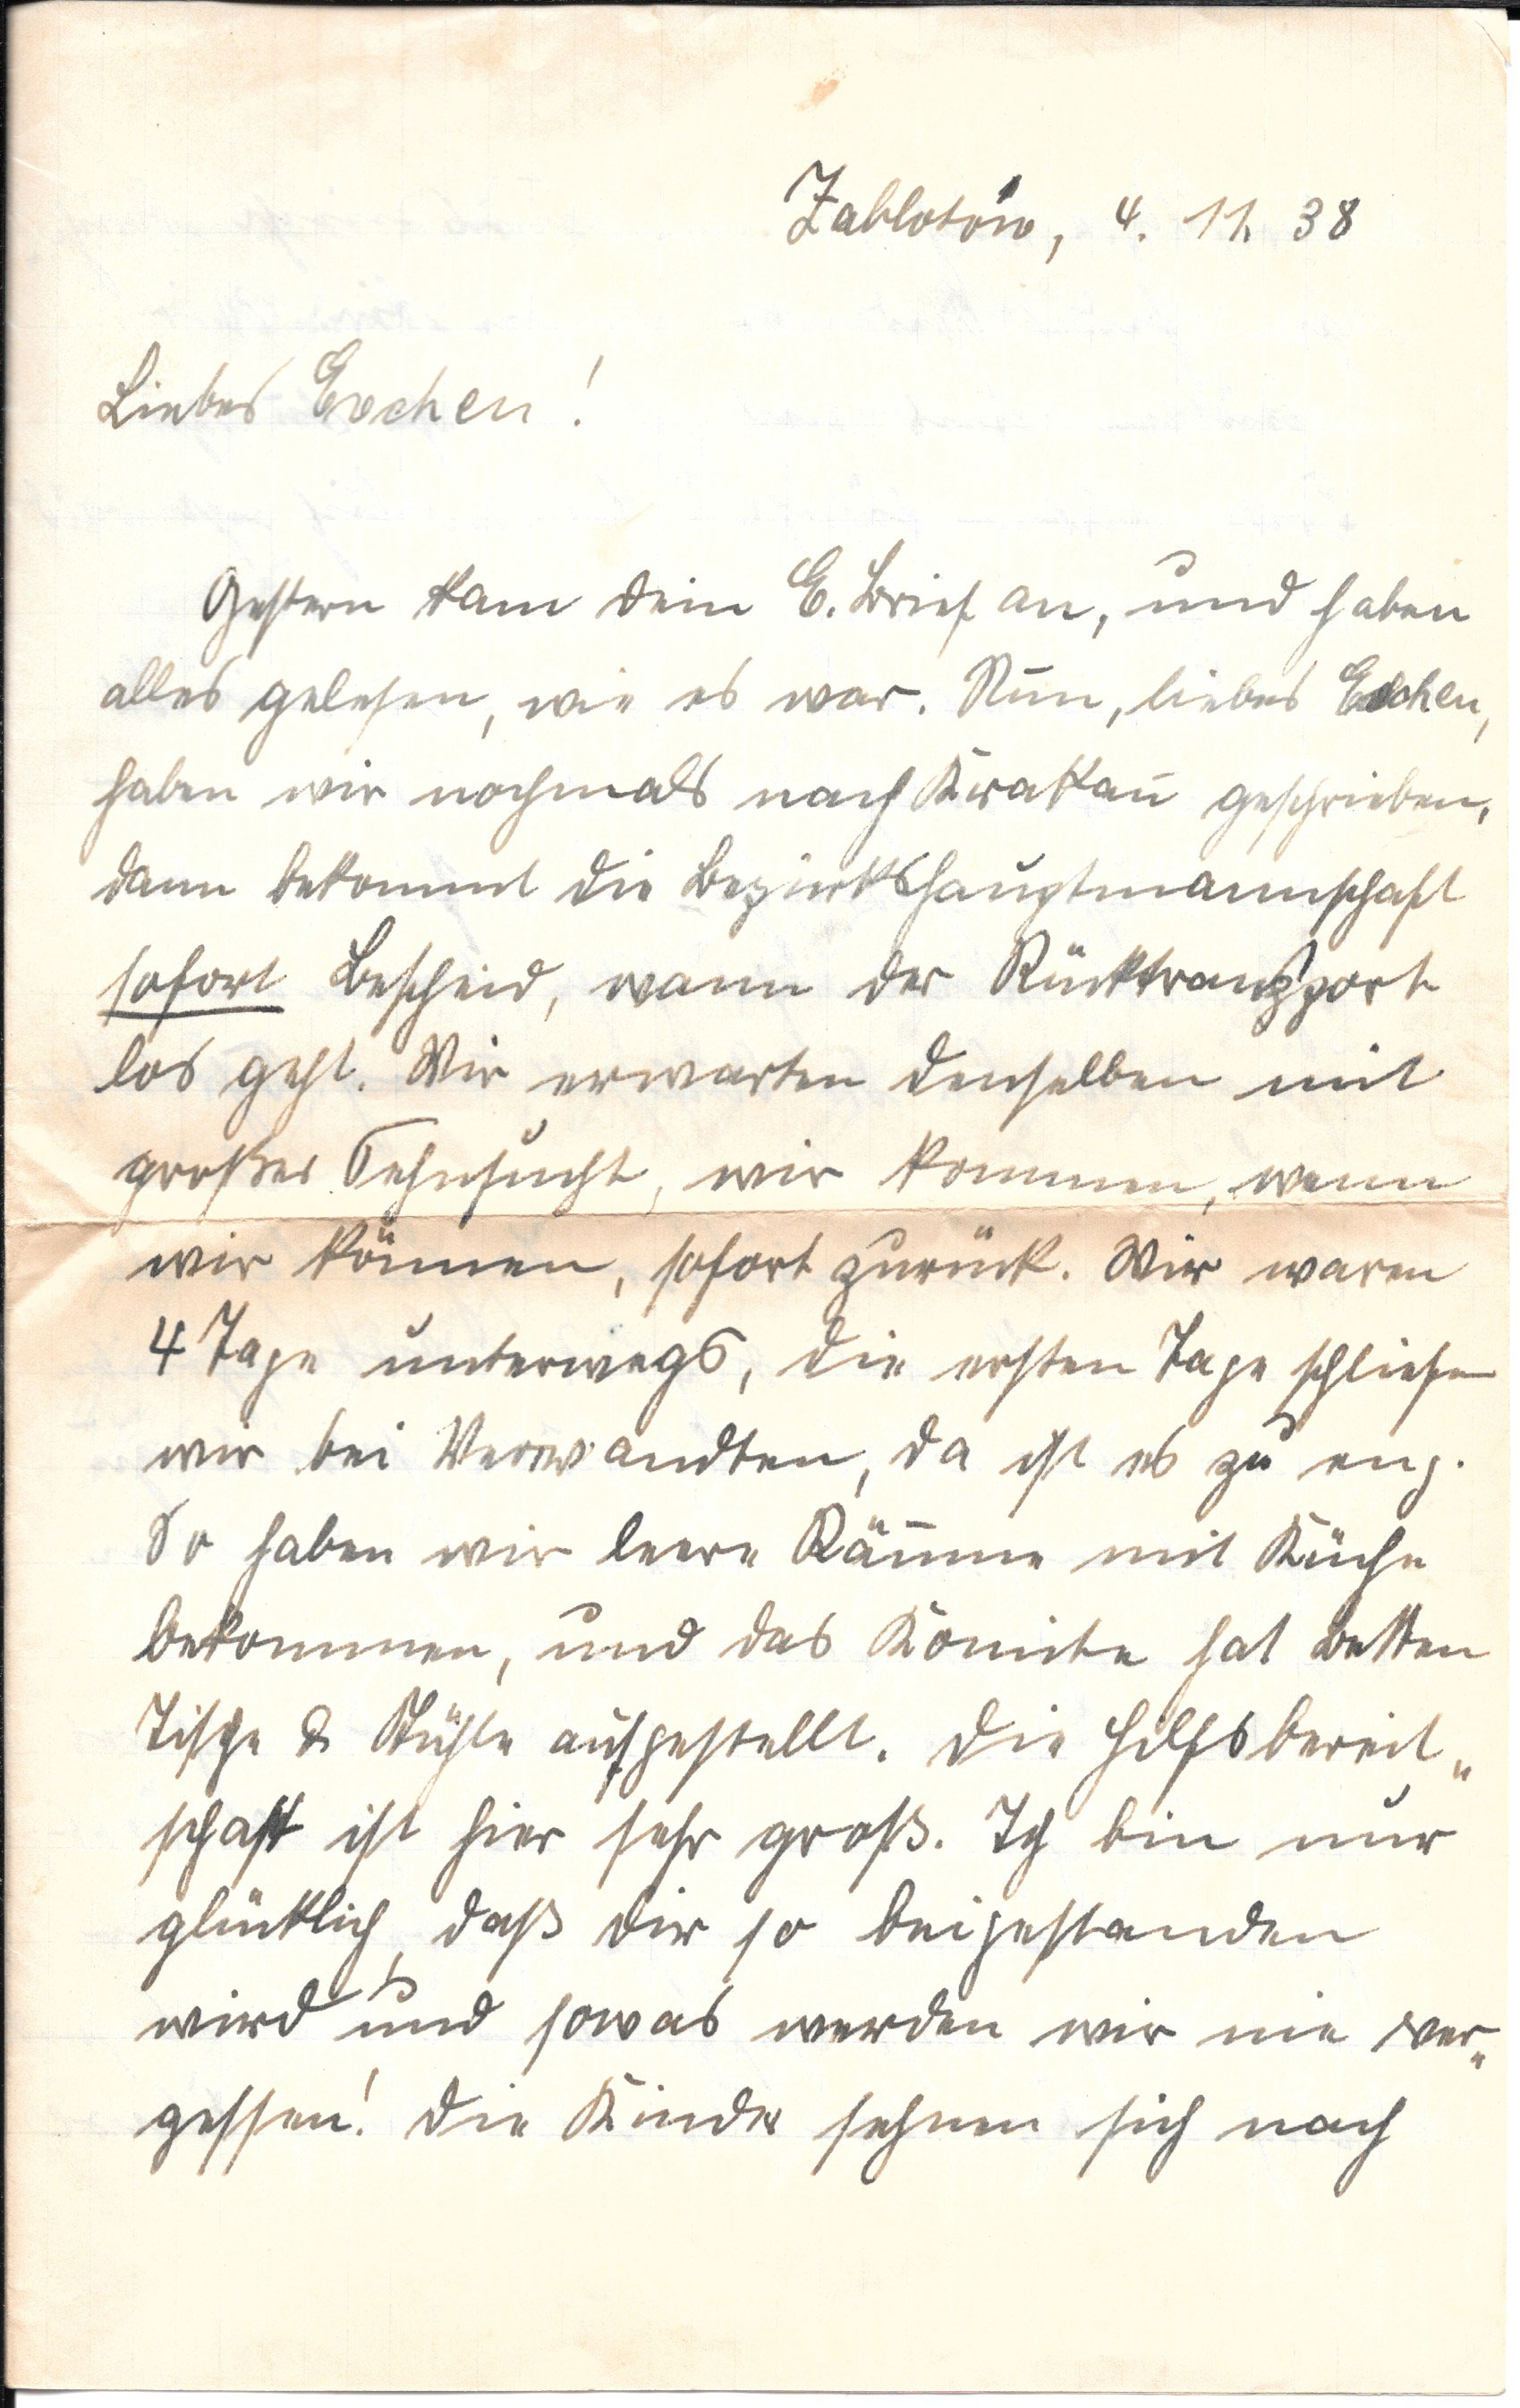 Zablotów, 4. 11. 38
Liebes Evchen!
Gestern kam dein E. Brief an, und haben
alles gelesen, wie es war. Nun, liebes Evchen,
haben wir nochmals nach Krakau geschrieben,
dann bekommt die Bezirkshauptmannschaft
sofort Bescheid, wann der Rücktransport
los geht. Wir erwarten denselben mit
großer Sehnsucht, wir kommen, wenn
wir können, sofort zurück. Wir waren
4 Tage unterwegs, die ersten Tage schliefen
wir bei Verwandten, da ist es zu eng.
So haben wir leere Räume mit Küche
bekommen, und das Komite hat Betten
Tische & Stühle aufgestellt. Die Hilfsbereit„
schaft ist hier sehr groß. Ich bin nur
glücklich, daß dir so beigestanden
wird und sowas werden wir nie ver„
gessen! Die Kinder sehnen sich nach